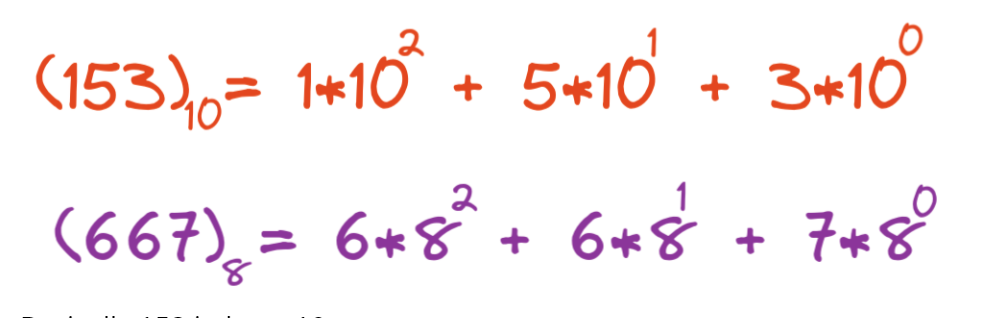 (153)₁₀ = 1*10² + 5*10¹ + 3*10⁰
(667)₈ = 6*8² + 6*8¹ + 7*8⁰